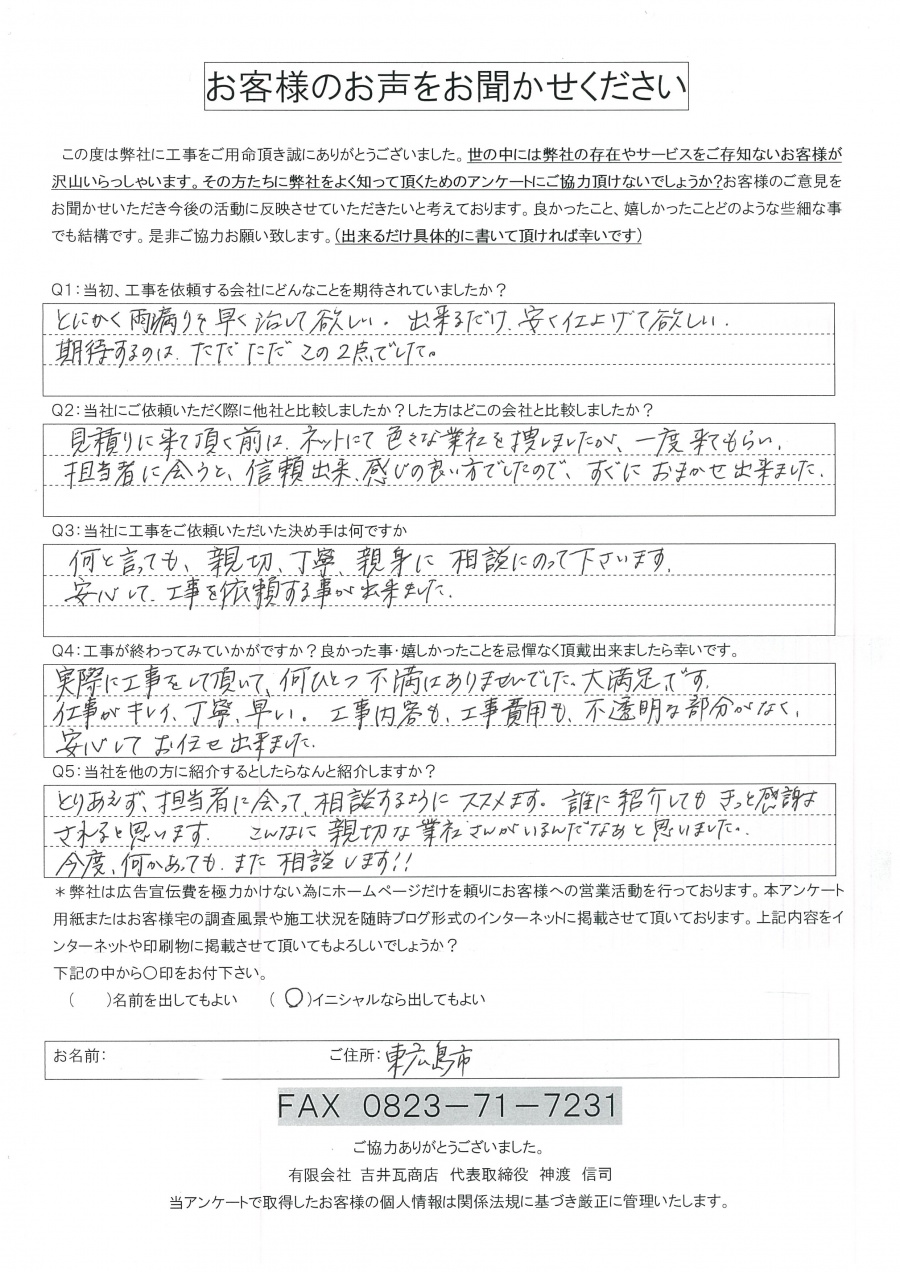 お客様のお声をお聞かせください
この度は弊社に工事をご用命頂き誠にありがとうございました。世の中には弊社の存在やサービスをご存知ないお客様が
沢山いらっしゃいます。その方たちに弊社をよく知って頂くためのアンケートにご協力頂けないでしょうか？お客様のご意見を
お聞かせいただき今後の活動に反映させていただきたいと考えております。良かったこと、嬉しかったことどのような些細な事
でも結構です。是非ご協力お願い致します。（出来るだけ具体的に書いて頂ければ幸いです）
Q1：当初、工事を依頼する会社にどんなことを期待されていましたか？
とにかく雨漏りを早く治して欲しい。出来るだけ、安く仕上げて欲しい。
期待するのは、ただただこの2点でした。
Q2：当社にご依頼いただく際に他社と比較しましたか？した方はどこの会社と比較しましたか？
見積りに来て頂く前は、ネットにて色々な業社を捜しましたが、一度来てもらい、
担当者に会うと、信頼出来、感じの良い方でしたので、すぐにおまかせ出来ました。
Q3：当社に工事をご依頼いただいた決め手は何ですか
何と言っても、親切、丁寧、親身に相談にのって下さいます。
安心して、工事を依頼する事が出来ました。
Q4：工事が終わってみていかがですか？良かった事・嬉しかったことを忌憚なく頂戴出来ましたら幸いです。
実際に工事をして頂いて、何ひとつ不満はありませんでした。大満足です。
仕事がキレイ、丁寧、早い。工事内容も、工事費用も、不透明な部分がなく、
安心してお任せ出来ました。
Q5：当社を他の方に紹介するとしたらなんと紹介しますか？
とりあえず、担当者に会って、相談するようにススメます。誰に紹介してもきっと感謝は
されると思います。こんなに親切な業社さんがいるんだなあと思いました。
今度、何かあっても、また相談します!!
＊弊社は広告宣伝費を極力かけない為にホームページだけを頼りにお客様への営業活動を行っております。本アンケート
用紙またはお客様宅の調査風景や施工状況を随時ブログ形式のインターネットに掲載させて頂いております。上記内容をイ
ンターネットや印刷物に掲載させて頂いてもよろしいでしょうか？
下記の中から〇印をお付下さい。
（　　）名前を出してもよい　（〇）イニシャルなら出してもよい
お名前：　ご住所：東広島市
FAX 0823－71－7231
ご協力ありがとうございました。
有限会社 吉井瓦商店 代表取締役 神渡 信司
当アンケートで取得したお客様の個人情報は関係法規に基づき厳正に管理いたします。